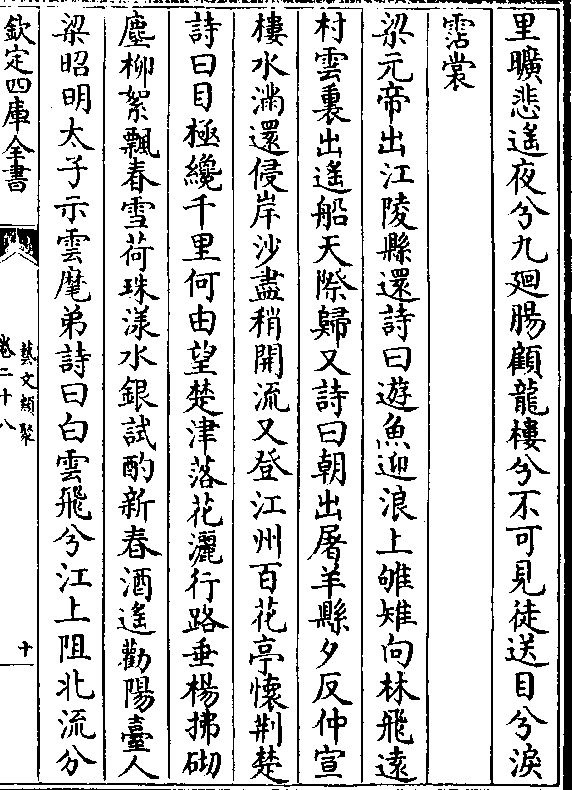 里曠悲遙夜兮九廻腸顧龍樓兮不可見徒送目兮淚
霑裳
梁元帝出江陵縣還詩曰遊魚迎浪上雊雉向林飛遠
村雲裏出遙船天際歸又詩曰朝出屠羊縣夕反仲宣
樓水滿還侵岸沙盡稍開流又登江州百花亭懷荆楚
詩曰目極纔千里何由望楚津落花灑行路垂楊拂砌
塵柳絮飄春雪荷珠漾水銀試酌新春酒遙勸陽臺人
梁昭明太子示雲麾弟詩曰白雲飛兮江上阻北流分
欽定四庫全書
藝文類聚
卷二十八
十